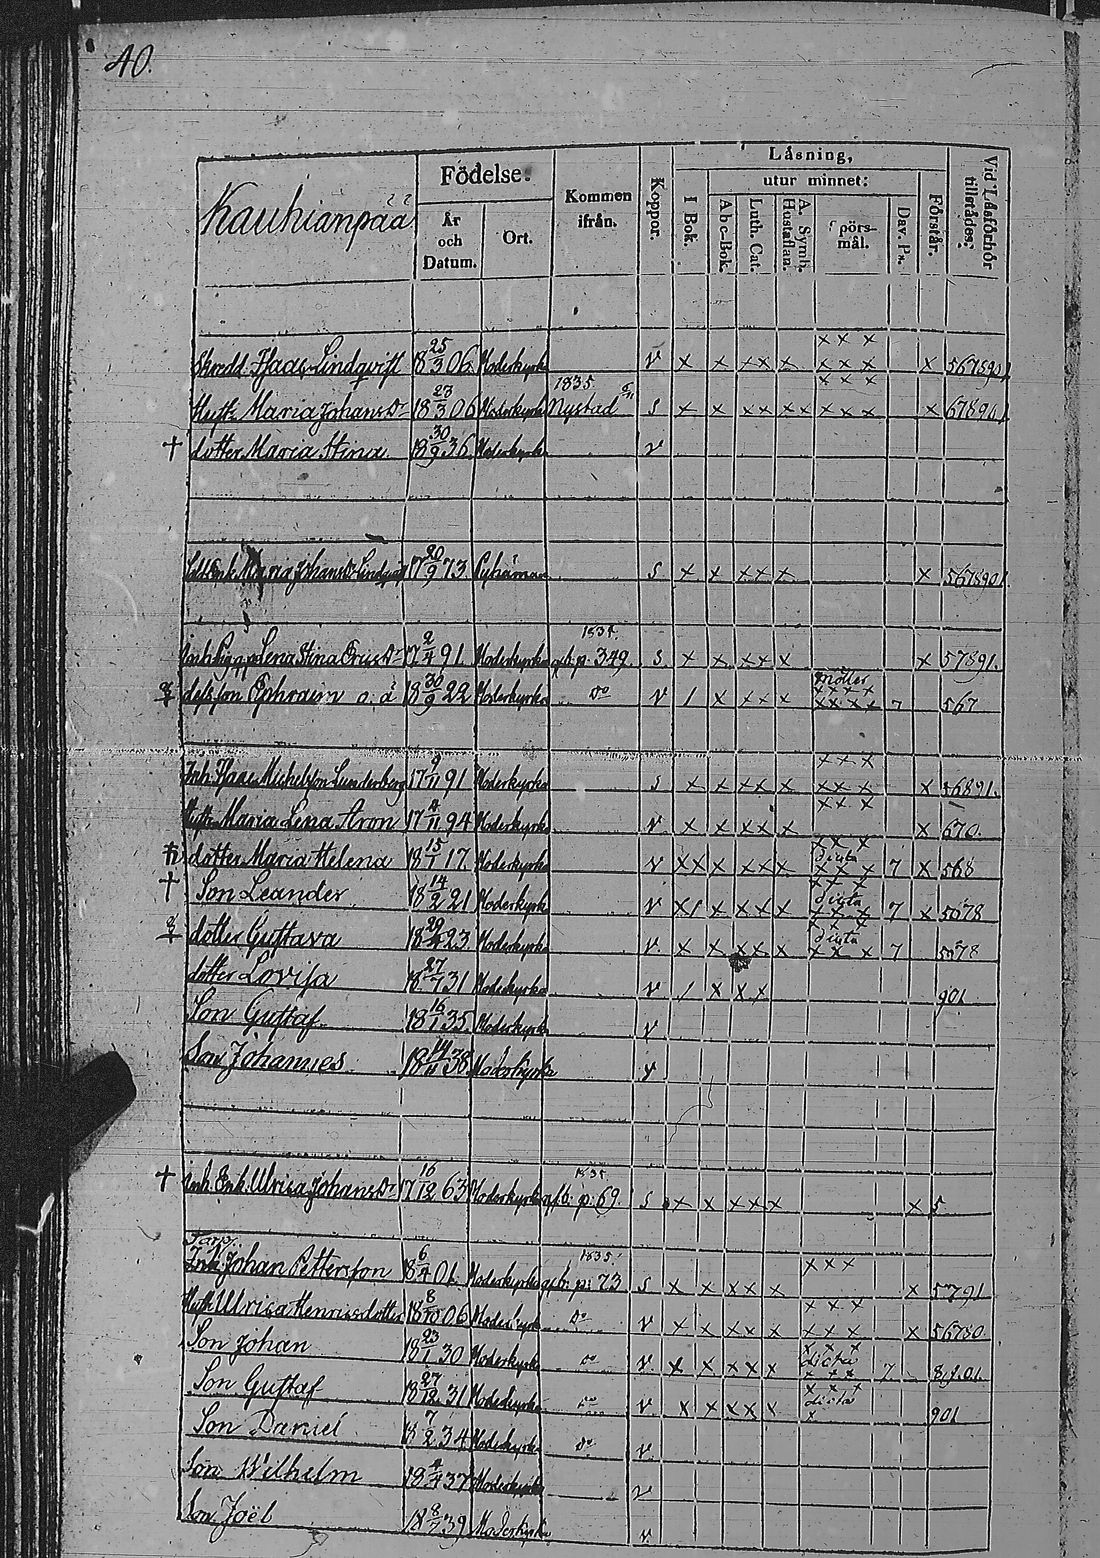 40.
Kauhianpää
Födelse:
År och Datum.
Ort.
Kommen ifrån.
Koppor.
Läsning,
I Bok.
utur minnet:
Abc-Bok.
Luth. Cat.
A. Symb. Hustaflan.
Spörsmål.
Dav. Ps.
Förstår.
Vid Läsförhör tillstädes:
Skredd. Isaac Lindqvist 18 25/3 06. Moderkyrk v x x xx x xxx xxx x 567890/
Hust. Maria Johansdr 18 23/3 06 Moderkyrk 1835 Nystad s x x xx xx xxx xxx x
† dotter Maria Stina 18 30/9 36 Moderkyrk v
Enk. Maria Johansdr Lindqvist 17 20/9 73 Pyhämaa s x x xx x x 567890/
Lena Stina Ericsdr 17 2/4 91. Moderkyrka 1834. p. 349. s. x x xx x x 57891.
Ephraim o. ä 18 30/9 22 Moderkyrka Do v / x xx x xxxx xxxx 7 567
Inh. Isaac Michelsson Lunderberg 17 9/11 91 Moderkyrka s x x xx x xxx xxx x
Hust. Maria Lena Aron 17 4/11 94 Moderkyrka v x x xx x xxx x 670.
dotter Maria Helena 18 15/1 17. Moderkyrka v xx x xx x xxx dicta xxx 7 x 568
† Son Leander 18 14/2 21 Moderkyrk v x/ x xx x xxx dicta xxx 7 x 5678
dotter Gustava 18 29/4 23. Moderkyrk v x x xx x xxx dicta xxx 7 5678
dotter Lovisa 18 27/7 31 Moderkyrka v / x xx 901
Son Gustaf 18 16/1 35. Moderkyrk v
Son Johannes 18 14/11 38 Moderkyrka v
† Inh. Enk. Ulrica Johansdr 17 16/12 63 Moderkyrka 1835 p. 69 s x x xx x x 5
Torp.
Johan Pettersson 18 6/4 01. Moderkyrk 1835. p. 73 s x x xx x xxx x 5791
Hust. Ulrica Henricsdotter 18 8/10 06 Moderkyrk Do v x x xx x xxx xxx x 56780
Son Johan 18 23/1 30 Moderkyrka Do v x x xx x xxx dicta xxx 7
Son Gustaf 18 27/12 31 Moderkyrka Do v. x x xx x xxx dicta x 901
Son Daniel 18 7/2 34 Moderkyrk Do v.
Son Wilhelm 18 4/4 37 Moderkyrk v
Son Joël 18 8/7 39 Moderkyrka v.